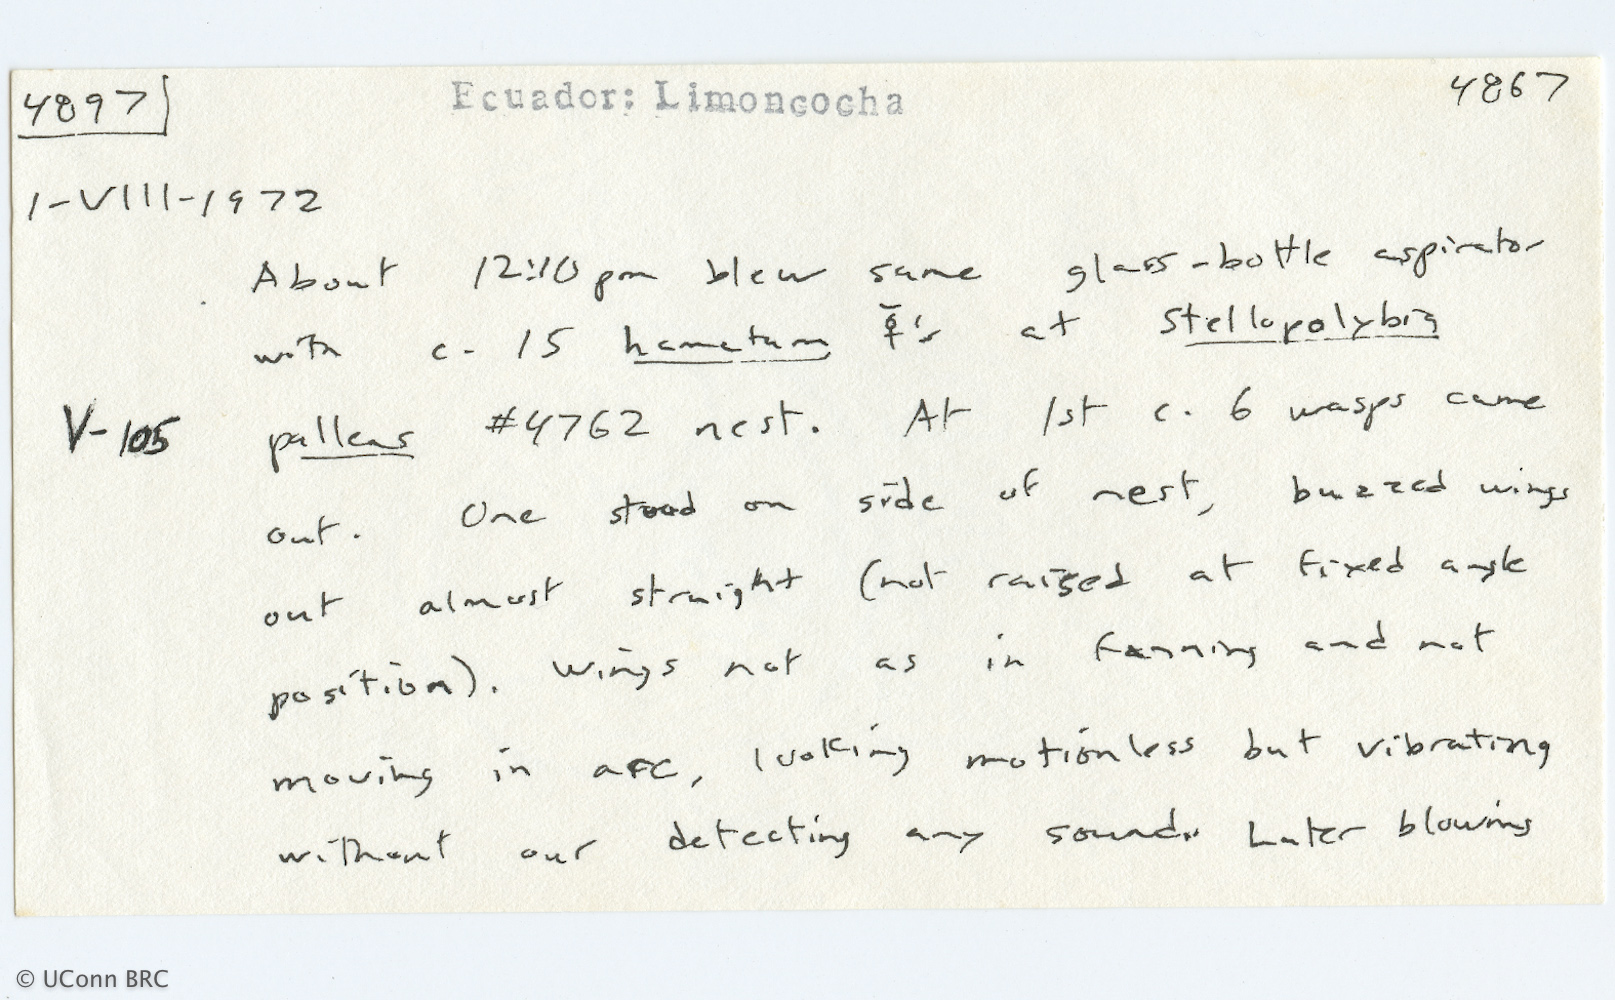 4897 Ecuador: Limoncocha 4867
1-VIII-1972
About 12:10 pm blew same glass-bottle aspirator
with c. 15 hamatum ☿'s at Stellopolybia
V-105 pallens #4762 nest. At 1st c. 6 wasps came
out. One stood on side of nest, buzzed wings
out almost straight (not raised at fixed angle
position). Wings not as in fanning and not
moving in arc, looking motionless but vibrating
without our detecting any sound. Later blowing
© UConn BRC